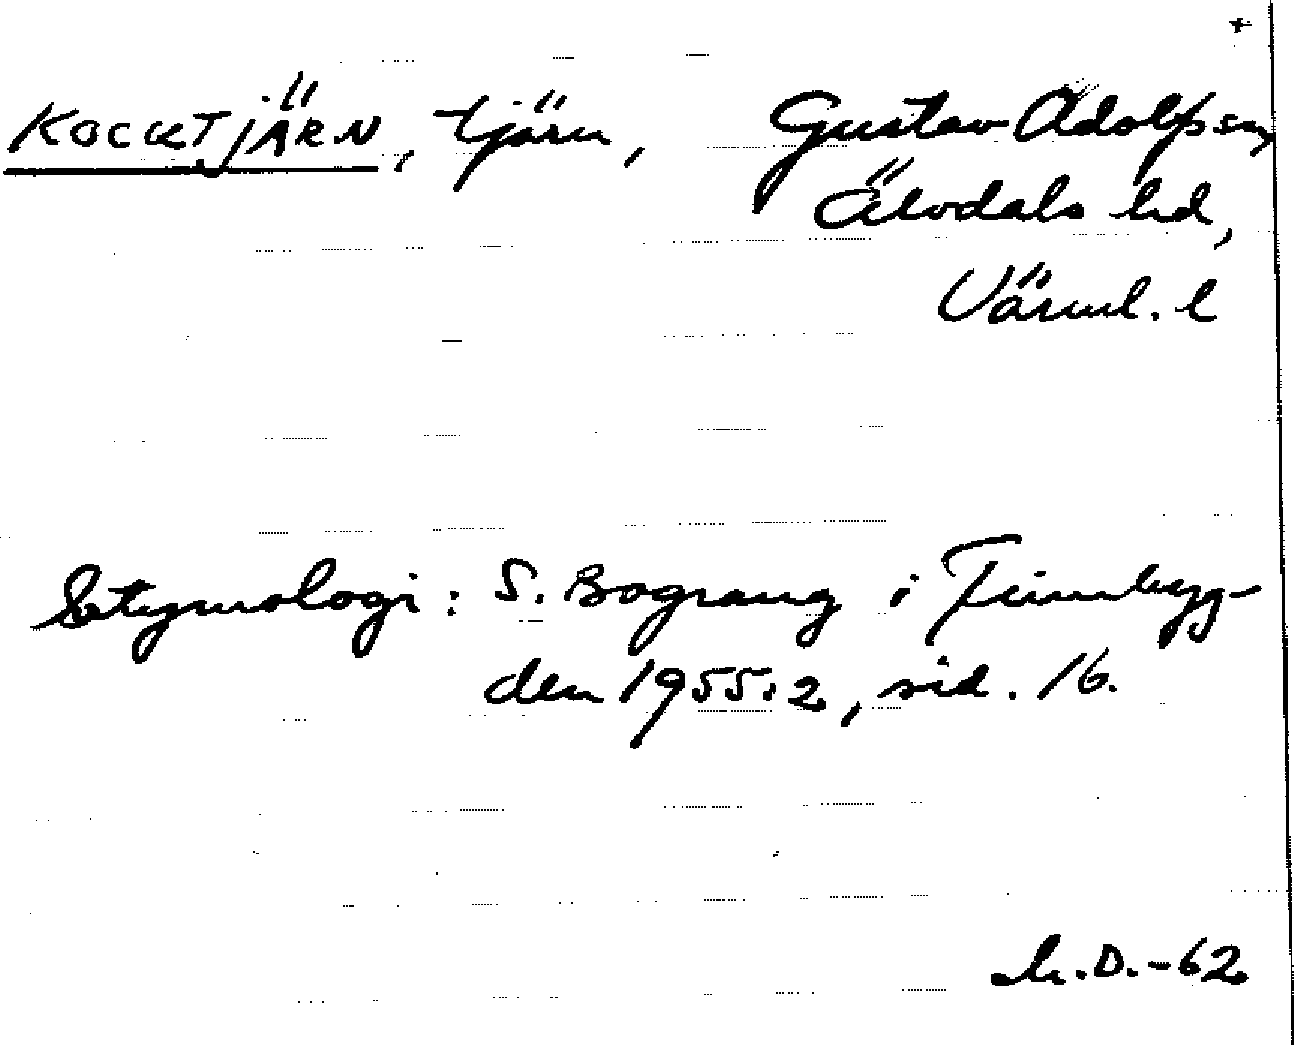 +
KOCKTJÄRN, tjärn, Gustav Adolfs sn,
Älvdals hd,
Värml. l
Etymologi: S. Bograng i Finnbyg-
den 1955:2, sid. 16.
M.D.-62